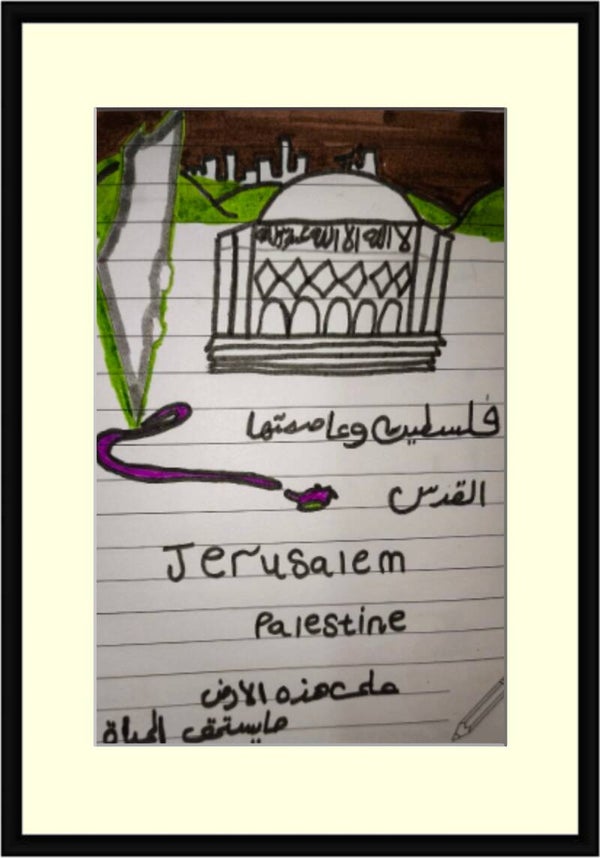 لا اله الا الله محمد
فلسطين وعاصمتها
القدس
Jerusalem
Palestine
على هذه الارض
مايستحق الحياة